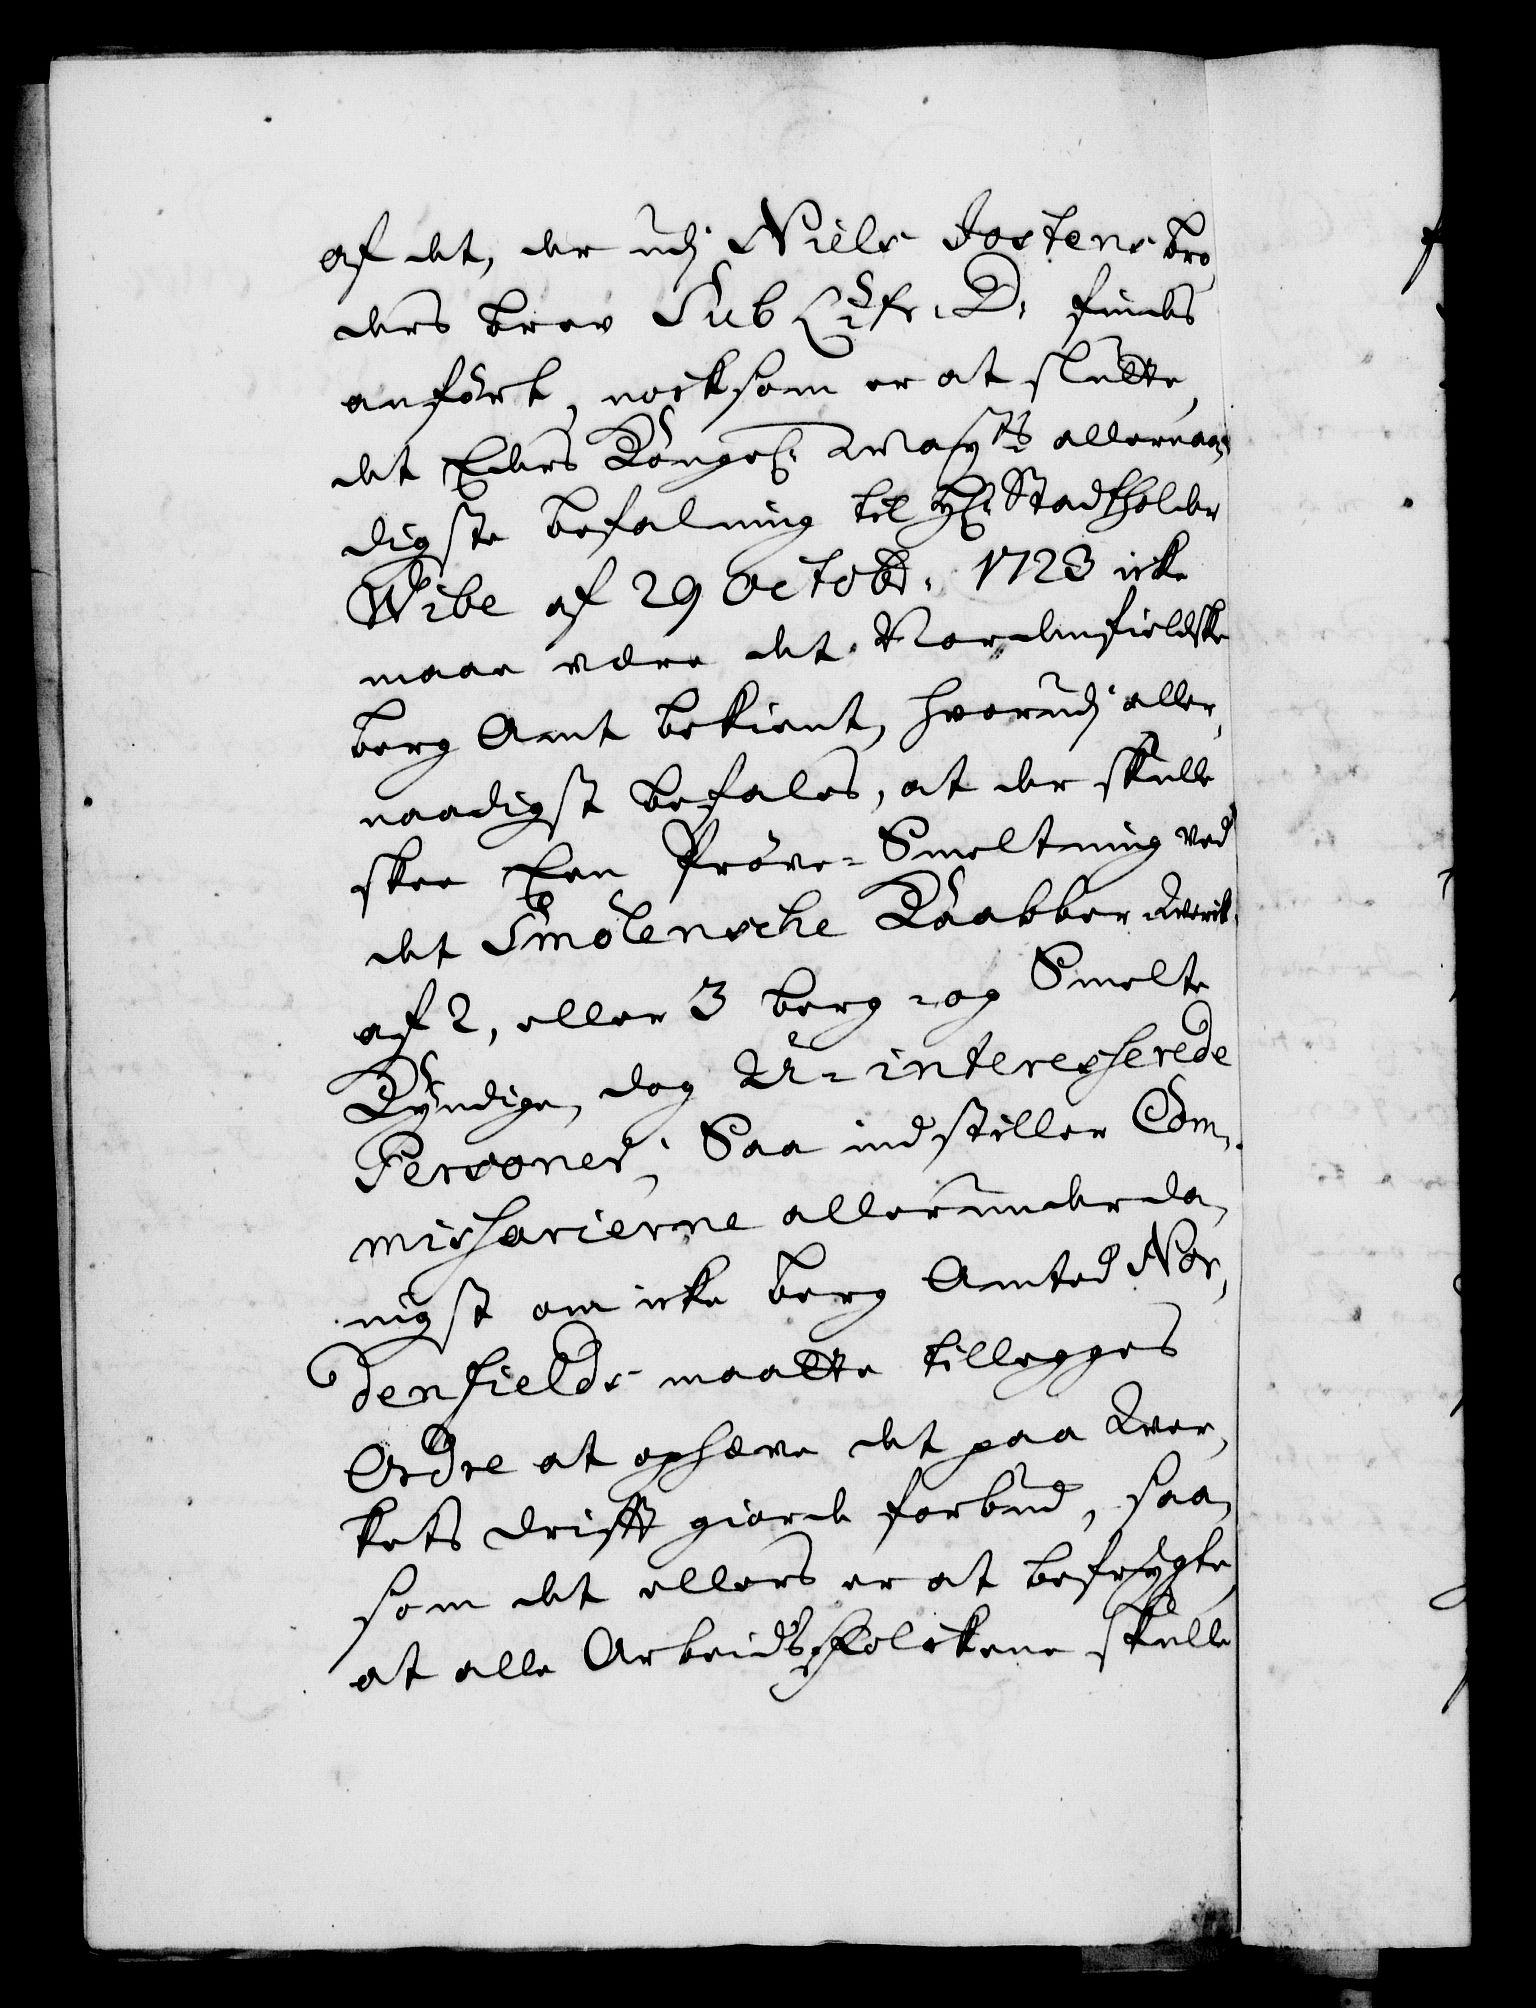 af det, der udj Niels Jostensbrø,
ders brev Sub Lit: D: findes
anført, nocksom er at slutte,
det Eders Kongel: Mayts allernaa,
digste befalning til Hl: Stadtholder
Wibe af 29 Octobr: 1723 icke
maae være det Nordenfieldske
berg Amt bekient, hvorudj aller,
naadigst befales, at der skulle
skee Een Prøve-Smeltning ved
det Smölensche Kaabber Werck,
af 2, eller 3 berg- og Smelte
Kÿndige, dog U-interesserede
Personer; Saa indstiller Com,
missarierne allerunderda,
nigst om icke berg Amted Nor,
denfields maatte tillegges
Ordre at ophæve det paa Wer,
kets drifft giorde forbud, saa,
som det ellers er at befrÿgte,
at alle Arbeidsfolckene skulle